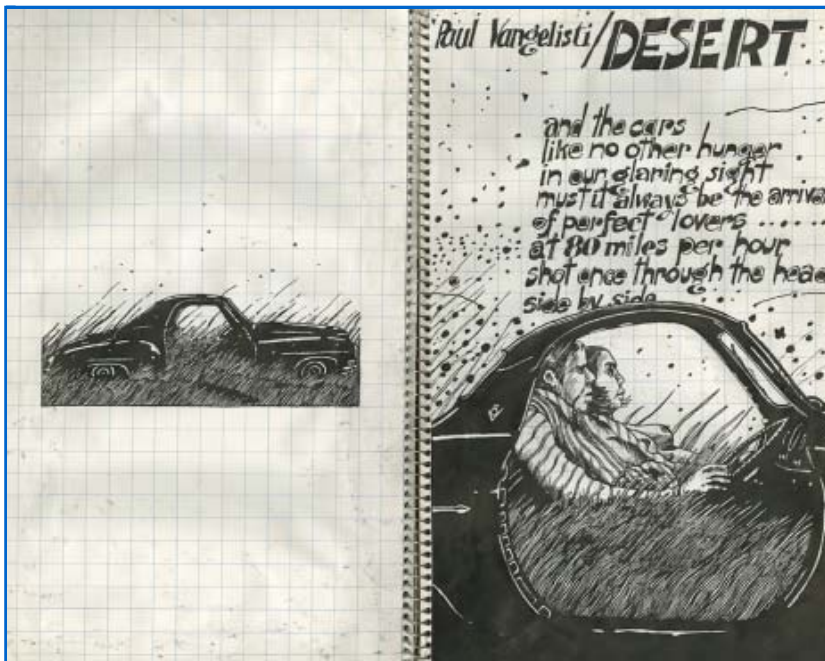 Paul Vangelisti/DESERT
and the cars
like no other hunger
in our glaring sight
must it always be the arrival
of perfect lovers ....
at 80 miles per hour
shot once through the head
side by side